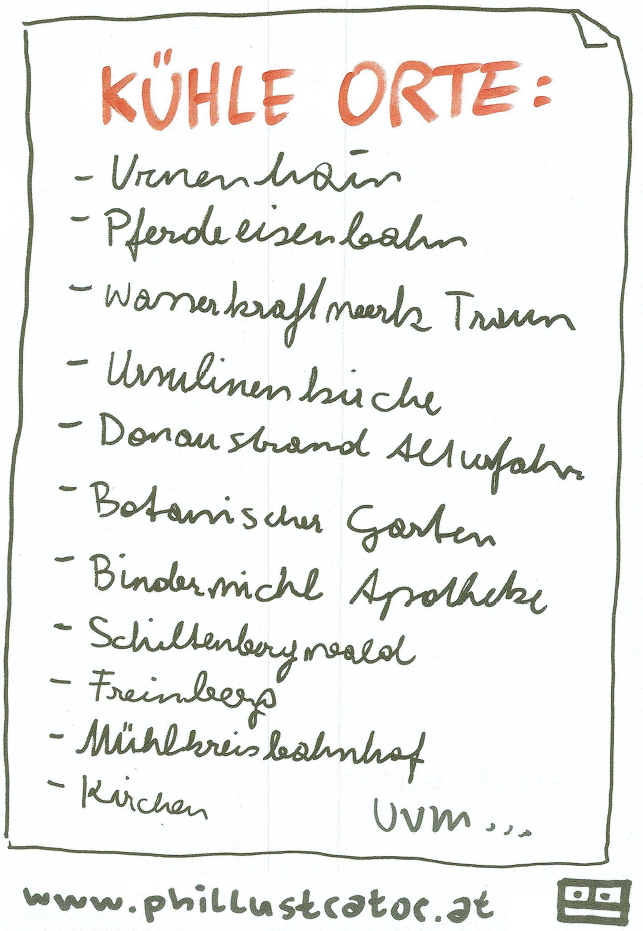 KÜHLE ORTE:
- Urnenhain
- Pferdeeisenbahn
- Wasserkraftwerk Traun
- Ursulinenkirche
- Donaustrand Alturfahr
- Botanischer Garten
- Bindermichl Apotheke
- Schiltenbergwald
- Freinberg
- Mühlkreisbahnhof
- Kirchen
uvm...
www.phillustrator.at